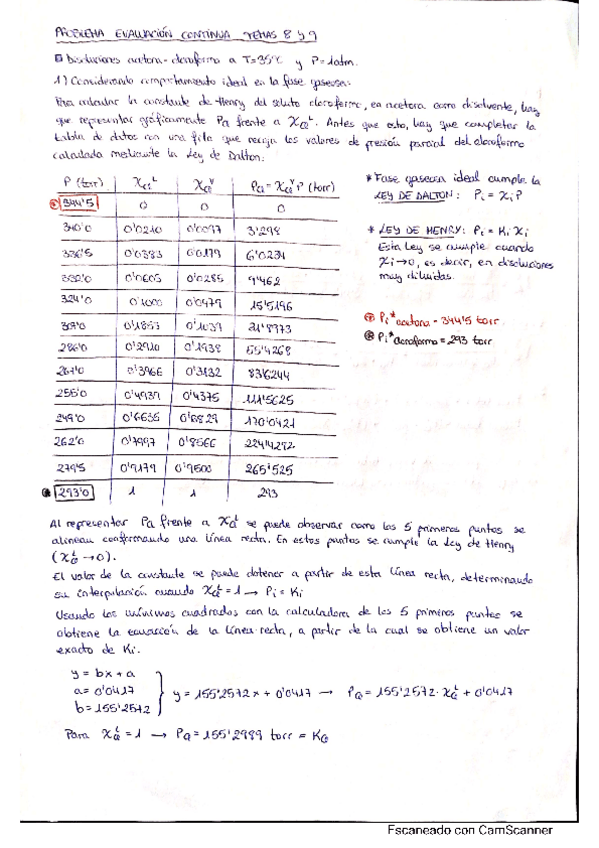 PROBLEMA EVALUACIÓN CONTINUA TEMAS 8 y 9
Disoluciones acetona-cloroformo a T=35ºC y P=1atm.
1) Considerando comportamiento ideal en la fase gaseosa:
Para calcular la constante de Henry del soluto cloroformo, en acetona como disolvente, hay
que representar gráficamente Pcl frente a Xcl^L. Antes que esto, hay que completar la
tabla de datos con una fila que recoja los valores de presión parcial del cloroformo
calculada mediante la Ley de Dalton:
P (torr) Xcl^L Xcl^V Pcl = Xcl^V P (torr)
344'5 0 0 0
340'0 0'0210 0'0097 3'298
336'5 0'0383 0'0179 6'0234
332'0 0'0605 0'0285 9'462
324'0 0'1000 0'0479 15'5196
0'2910 0'1938 55'4268
0'3966 0'3132 83'6244
255'0 0'4939 0'4375 111'5625
249'0 0'6635 0'6829 170'0421
262'0 0'7997 0'8566 224'4292
279'5 0'9179 0'9500 265'525
293'0 1 1 293
* Fase gaseosa ideal cumple la
LEY DE DALTON: Pi = xi P
* LEY DE HENRY: Pi = Ki Xi
Esta Ley se cumple cuando
Xi→0, es decir, en disoluciones
muy diluidas.
Pi* acetona = 344'5 torr.
Pi* cloroformo = 293 torr
Al representar Pcl frente a Xcl^L se puede observar como los 5 primeros puntos se
alinean conformando una línea recta. En estos puntos se cumple la Ley de Henry
(Xcl^L → 0).
El valor de la constante se puede obtener a partir de esta línea recta, determinando
su interpolación cuando Xcl^L = 1 → Pi = Ki
Usando los mínimos cuadrados con la calculadora de los 5 primeros puntos se
obtiene la ecuación de la línea recta, a partir de la cual se obtiene un valor
exacto de Ki.
y = bx + a
a = 0'0417
b = 155'2572
y = 155'2572x + 0'0417 → Pcl = 155'2572 · Xcl^L + 0'0417
Para Xcl^L = 1 → Pcl = 155'2989 torr = Kcl
Escaneado con CamScanner